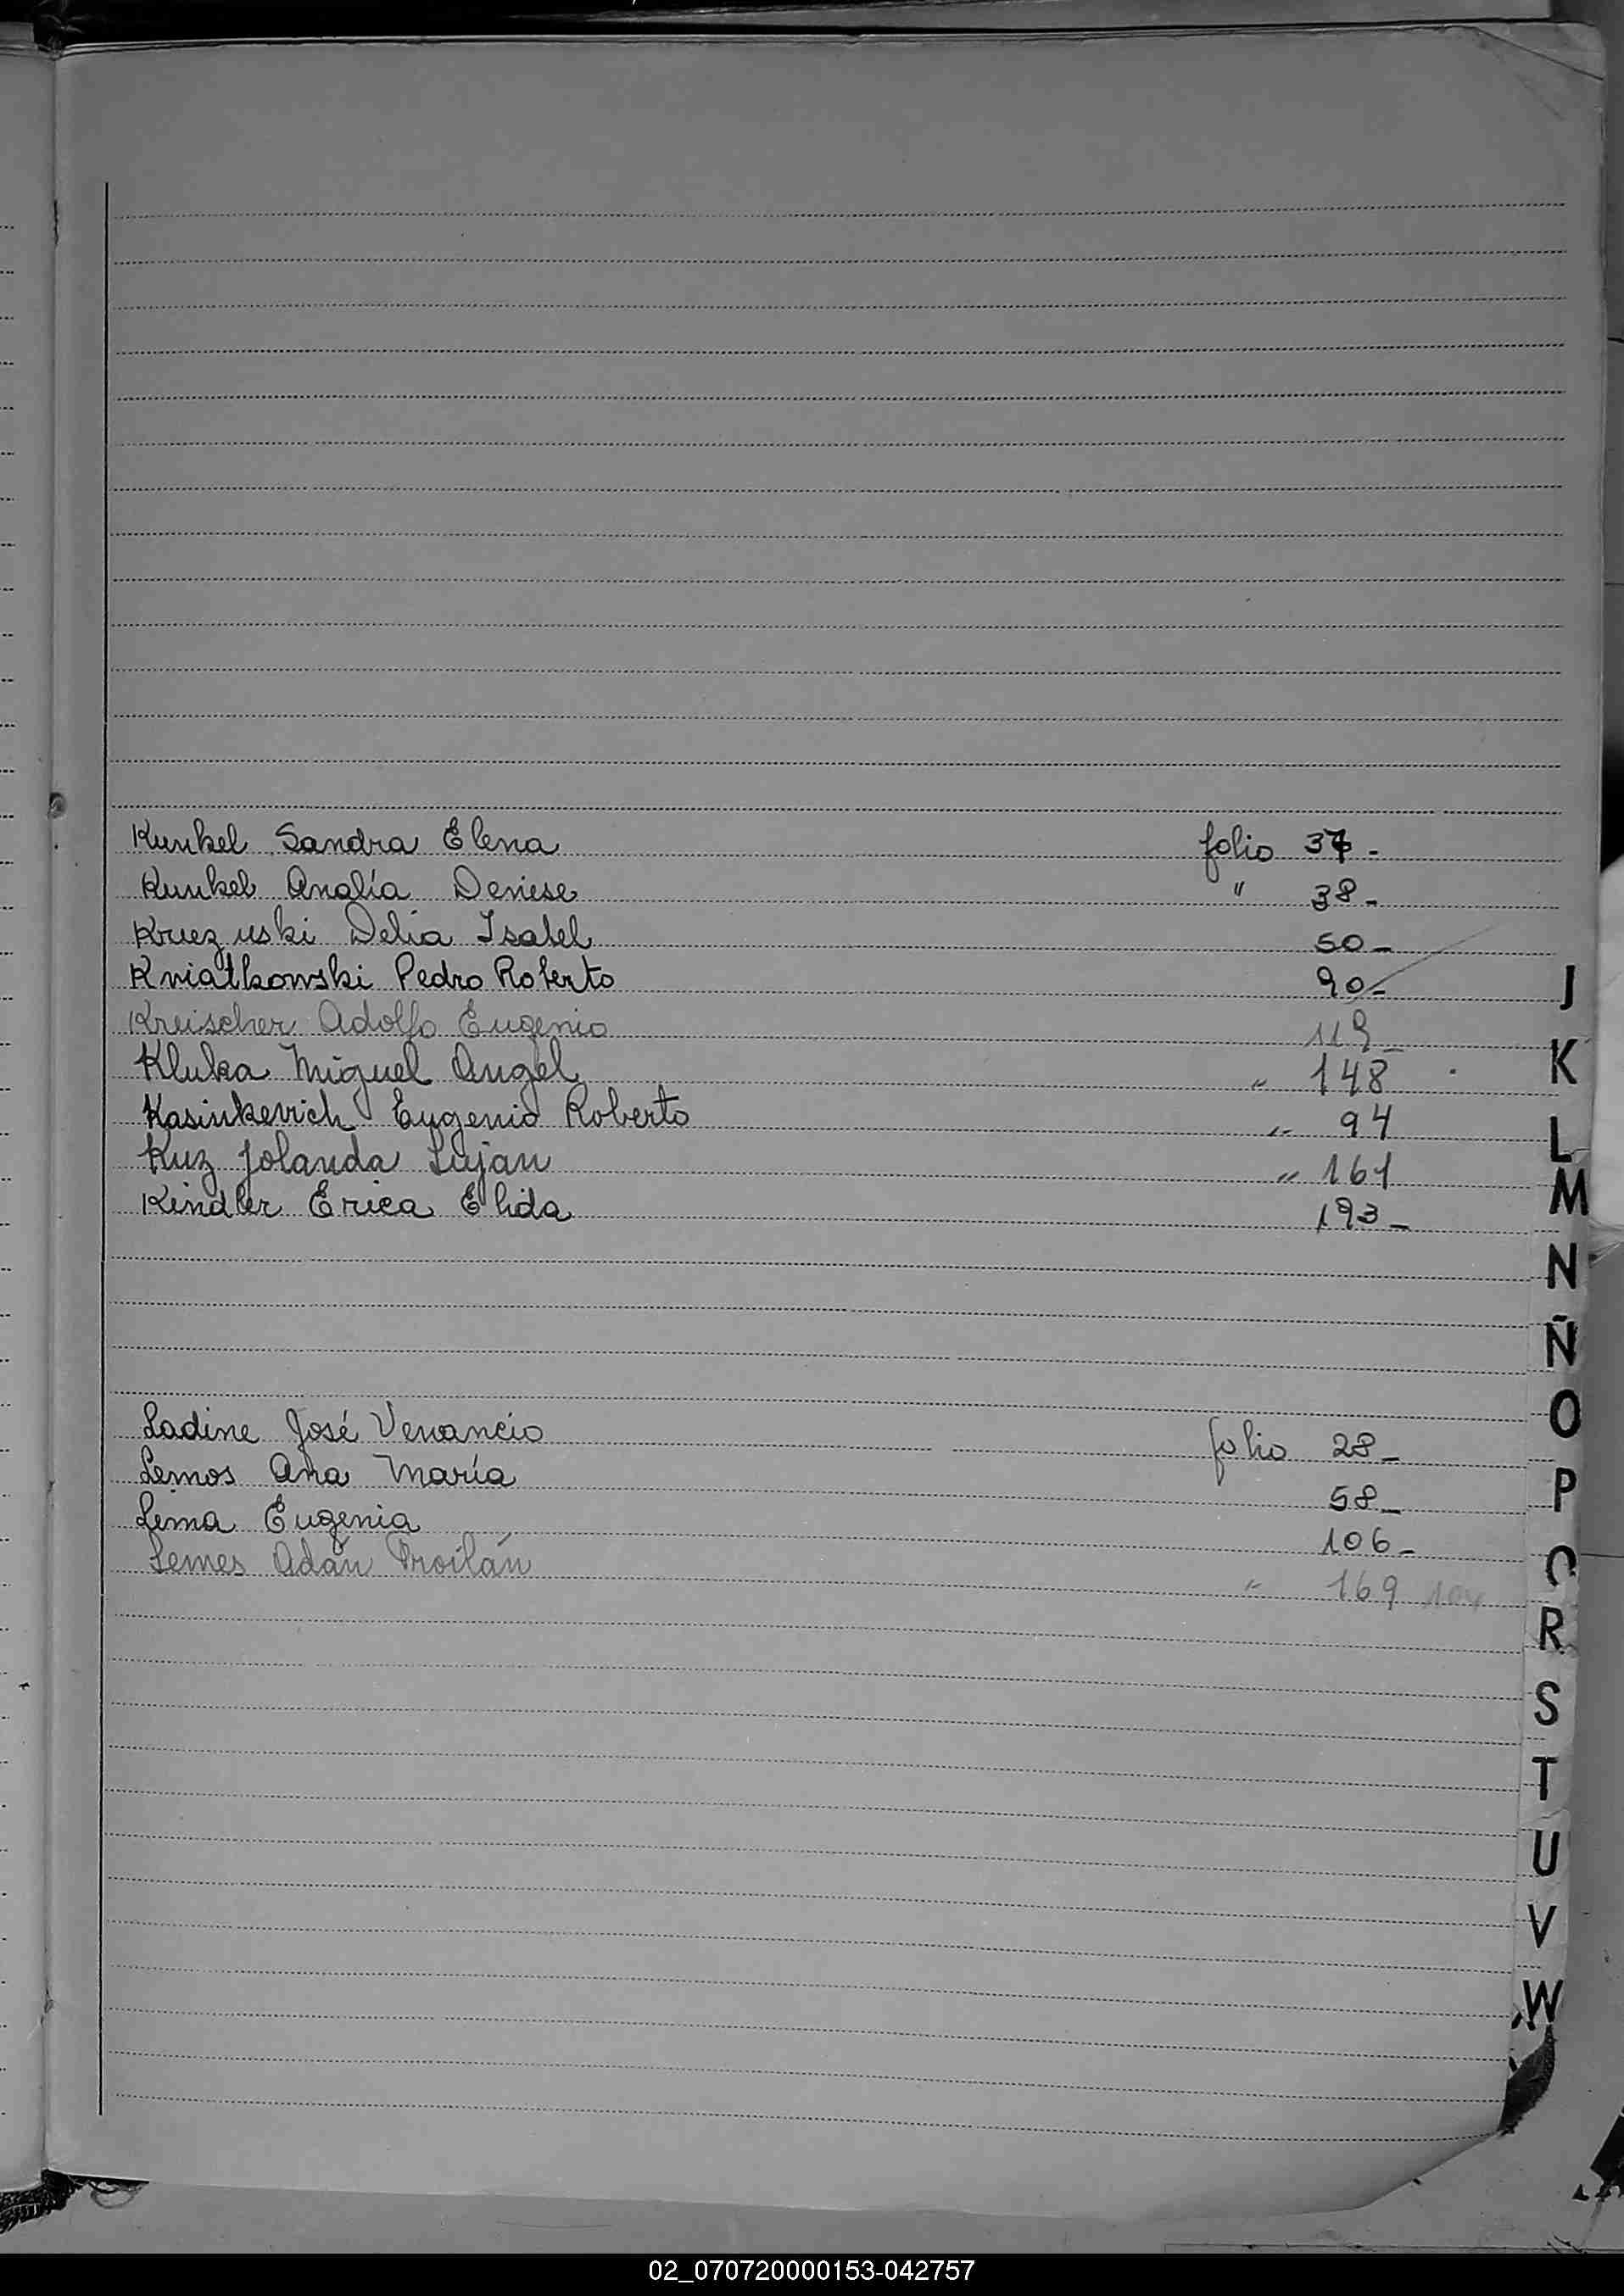 Kunkel Sandra Elena folio 37-
Kunkel Analía Deniese " 38-
Kruezuski Delia Isabel 50-
Kniatkowski Pedro Roberto 90-
Kreischer Adolfo Eugenio 119-
Kluka Miguel Angel " 148
Kasinkevich Eugenio Roberto " 94
Kuz Jolanda Lujan " 161
Kindler Erica Elida 193-
Ladine José Venancio folio 28-
Lemos Ana María 58-
Lima Eugenia 106-
Lemes Adán Froilán " 169
J
K
L
M
N
Ñ
O
P
Q
R
S
T
U
V
W
02_070720000153-042757